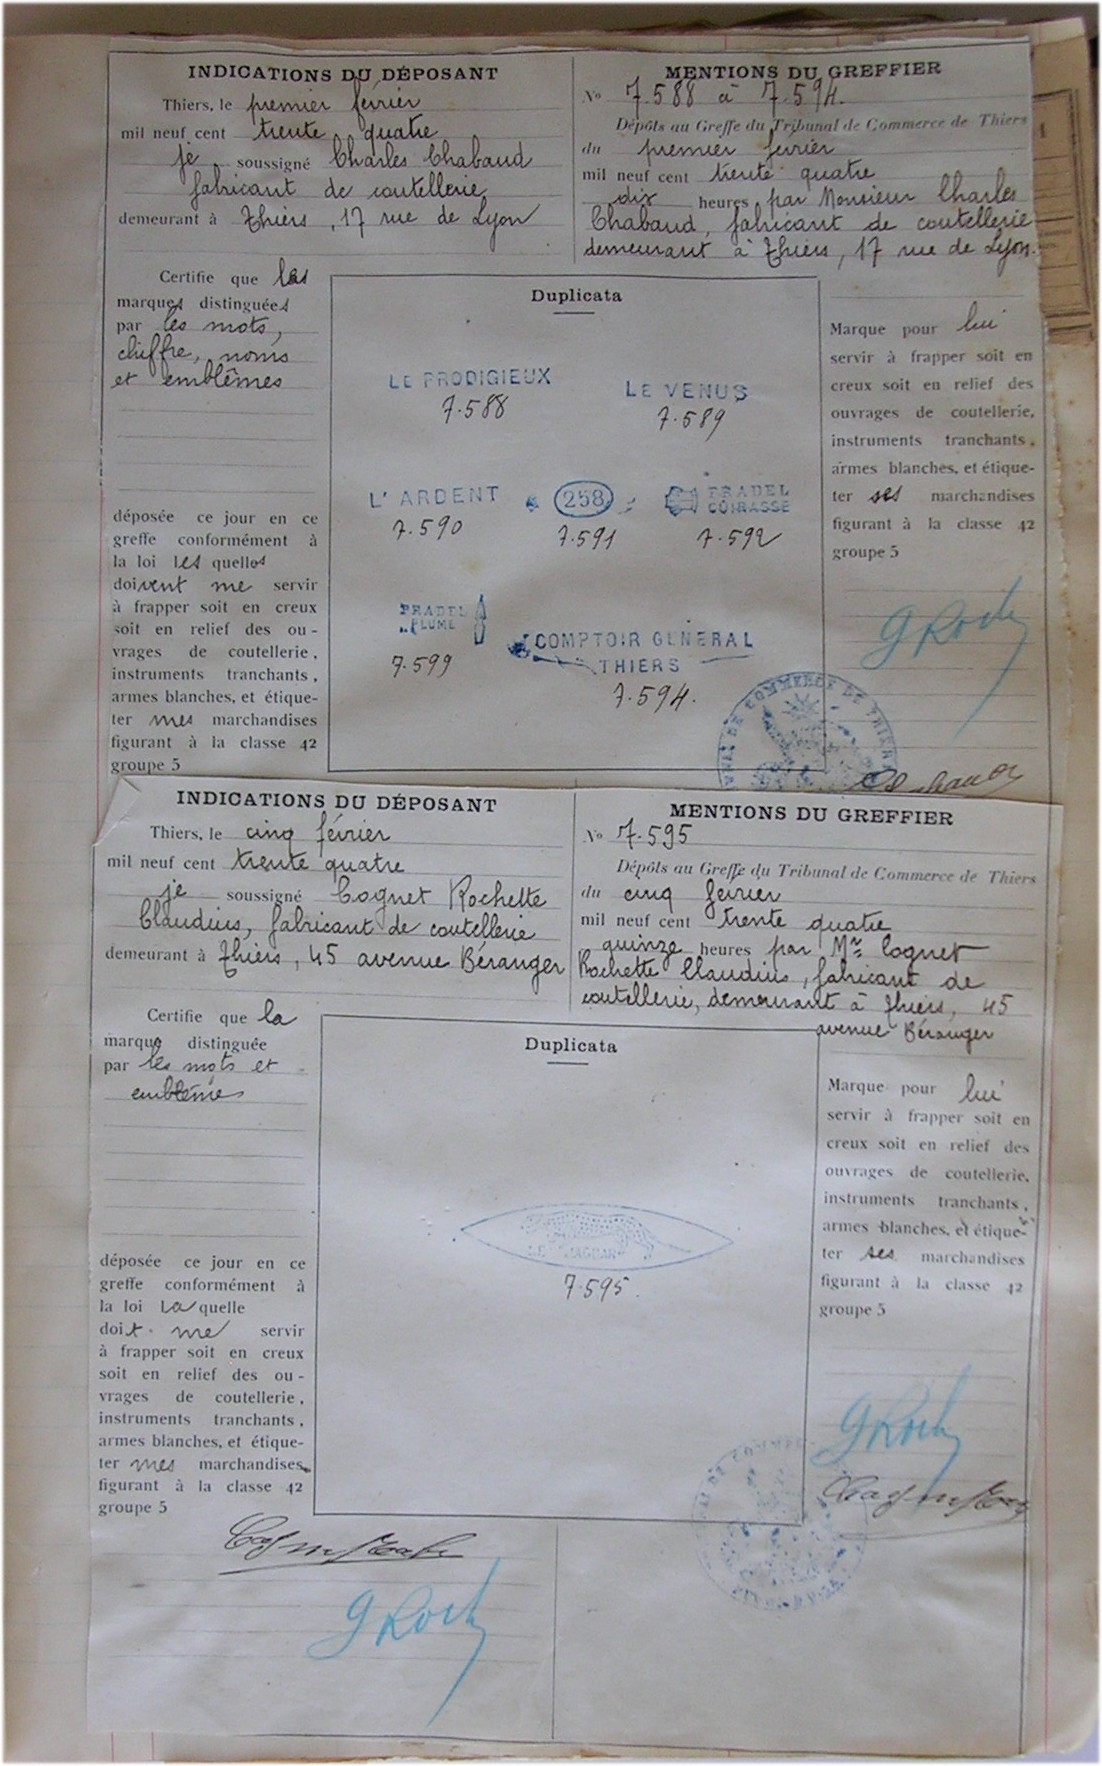 INDICATIONS DU DÉPOSANT
Thiers, le premier février
mil neuf cent trente quatre
je soussigné Charles Chabaud
fabricant de coutellerie
demeurant à Thiers, 17 rue de Lyon
MENTIONS DU GREFFIER
No 7.588 à 7.594.
Dépôts au Greffe du Tribunal de Commerce de Thiers
du premier février
mil neuf cent trente quatre
dix heures par Monsieur Charles
Chabaud, fabricant de coutellerie
demeurant à Thiers, 17 rue de Lyon.
Certifie que les
marques distinguées
par les mots,
chiffre, noms
et emblêmes
déposée ce jour en ce
greffe conformément à
la loi les quelles
doivent me servir
à frapper soit en creux
soit en relief des ou-
vrages de coutellerie,
instruments tranchants,
armes blanches, et étique-
ter mes marchandises
figurant à la classe 42
groupe 5
Duplicata
LE PRODIGIEUX
7.588
LE VENUS
7.589
L'ARDENT
7.590
258
7.591
PRADEL
CUIRASSE
7.592
PRADEL
PLUME
7.599
COMPTOIR GENERAL
THIERS
7.594.
Marque pour lui
servir à frapper soit en
creux soit en relief des
ouvrages de coutellerie,
instruments tranchants,
armes blanches, et étique-
ter ses marchandises
figurant à la classe 42
groupe 5
INDICATIONS DU DÉPOSANT
Thiers, le cinq février
mil neuf cent trente quatre
je soussigné Cognet Rochette
Claudius, fabricant de coutellerie
demeurant à Thiers, 45 avenue Béranger
MENTIONS DU GREFFIER
No 7.595
Dépôts au Greffe du Tribunal de Commerce de Thiers
du cinq février
mil neuf cent trente quatre
quinze heures par Mr. Cognet
Rochette Claudius, fabricant de
coutellerie, demeurant à Thiers, 45
avenue Béranger
Certifie que la
marque distinguée
par les mots et
emblême
déposée ce jour en ce
greffe conformément à
la loi la quelle
doit me servir
à frapper soit en creux
soit en relief des ou-
vrages de coutellerie,
instruments tranchants,
armes blanches, et étique-
ter mes marchandises
figurant à la classe 42
groupe 5
Duplicata
LE JAGUAR
7.595.
Marque pour lui
servir à frapper soit en
creux soit en relief des
ouvrages de coutellerie,
instruments tranchants,
armes blanches, et étique-
ter ses marchandises
figurant à la classe 42
groupe 5